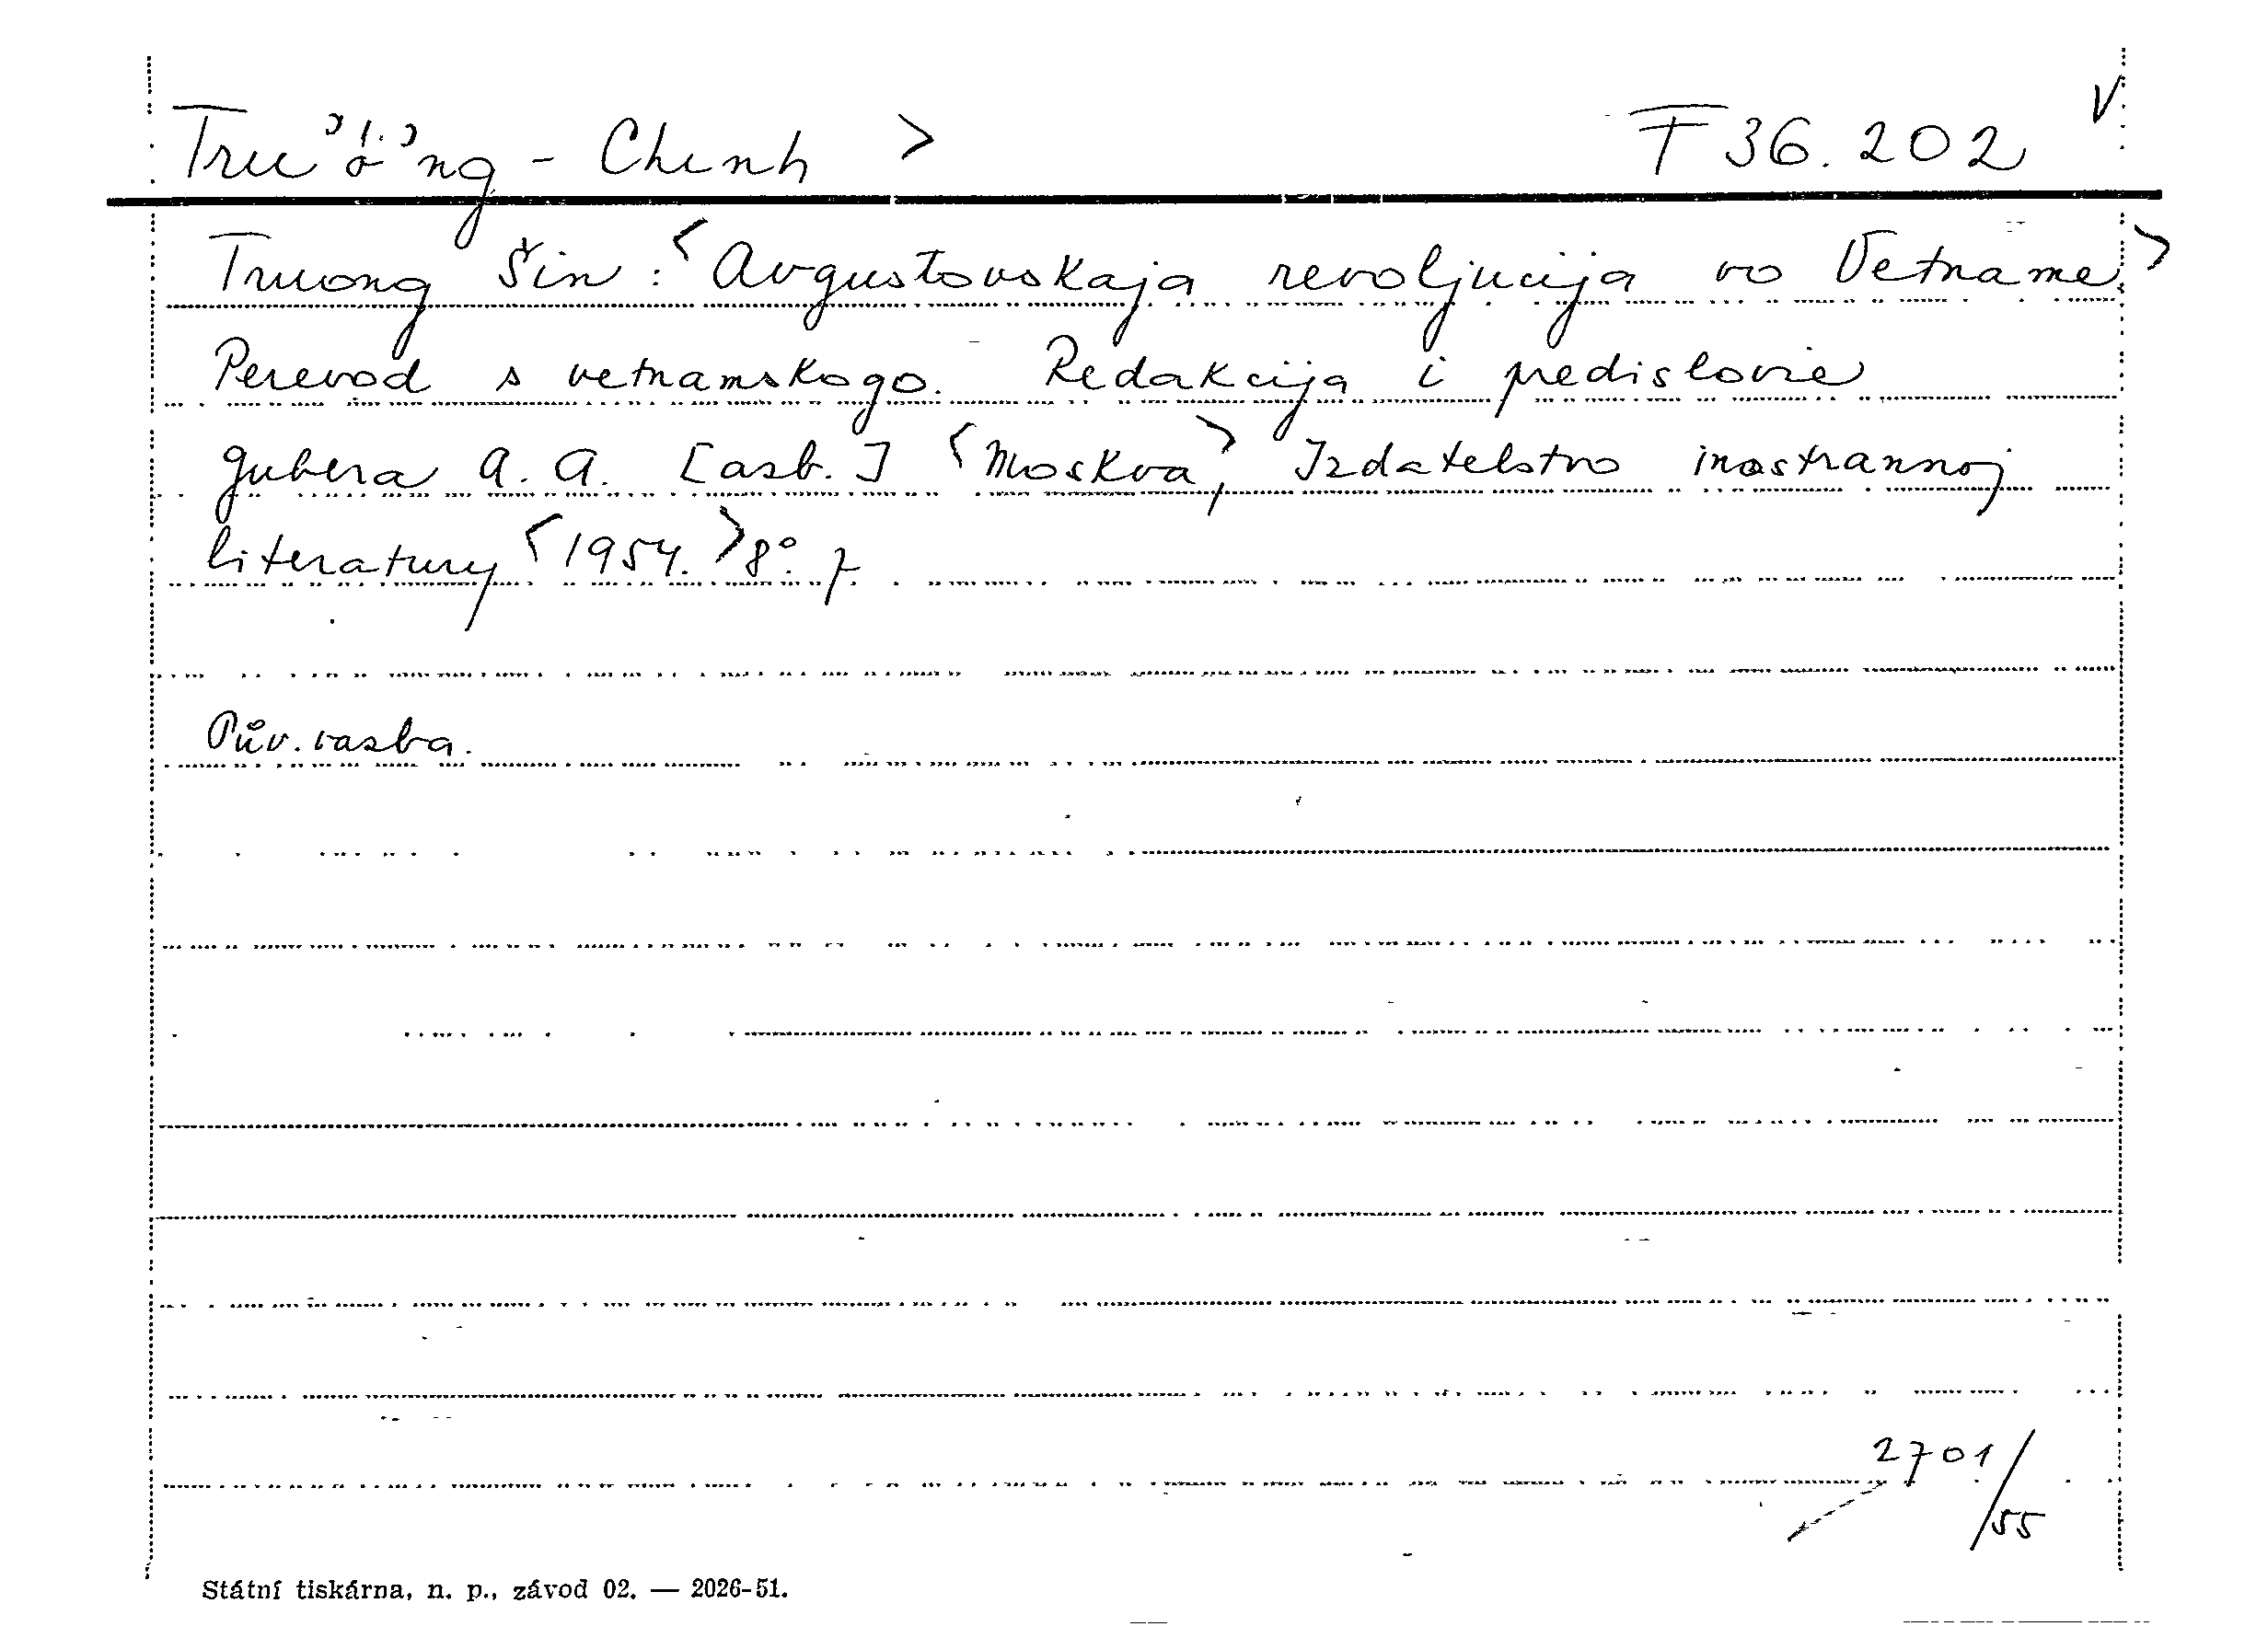 Trường - Chinh > F 36.202 V
Truong Šin : <Avgustovskaja revoljucija vo Vetname.>
Perevod s vetnamskogo. Redakcija i predislovie
Gubera A. A. [azb.] <Moskva>, Izdatelstvo inostrannoj
literatury <1954.> 8°. f.
Pův. vazba.
2701/55
Státní tiskárna, n. p., závod 02. — 2026-51.